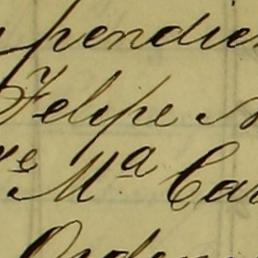 pendien
Felipe
Mª Car
Orden